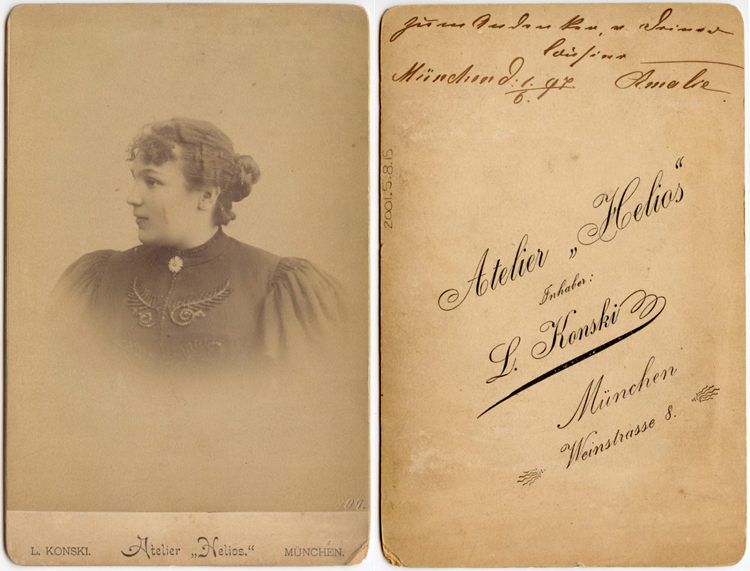 L. KONSKI.
Atelier „Helios.“
MÜNCHEN.
zum Andenken, v. Deiner
Cousine
München d. 1./6. 97
Amalie
2001.5.8.15
Atelier „Helios“
Inhaber:
L. Konski
München
Weinstrasse 8.